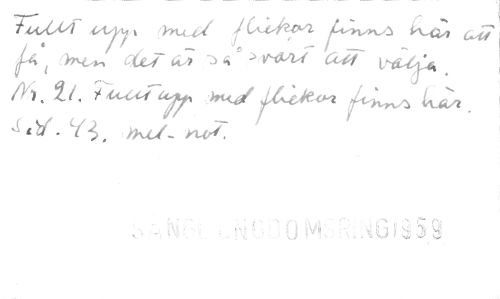 Fullt upp med flickor finns här att
få, men det är så svårt att välja.
Nr. 21. Fullt upp med flickor finns här.
Sid. 43. mel-not.
SÅNG UNGDOMSRING 1959